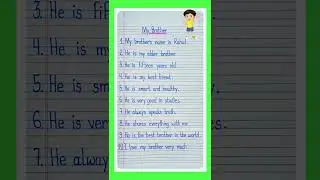 My Brother
1. My brother's name is Rahul.
2. He is my elder brother.
3. He is fifteen years old.
4. He is my best friend.
5. He is smart and healthy.
6. He is very good in studies.
7. He always speaks truth.
8. He shares everything with me.
9. He is the best brother in the world.
10. I love my brother very much.
3. He is fif
4. He is my
5. He is s
6. He is ve
7. He alway
2. He is my
friend.
healthy.
studies.
truth.